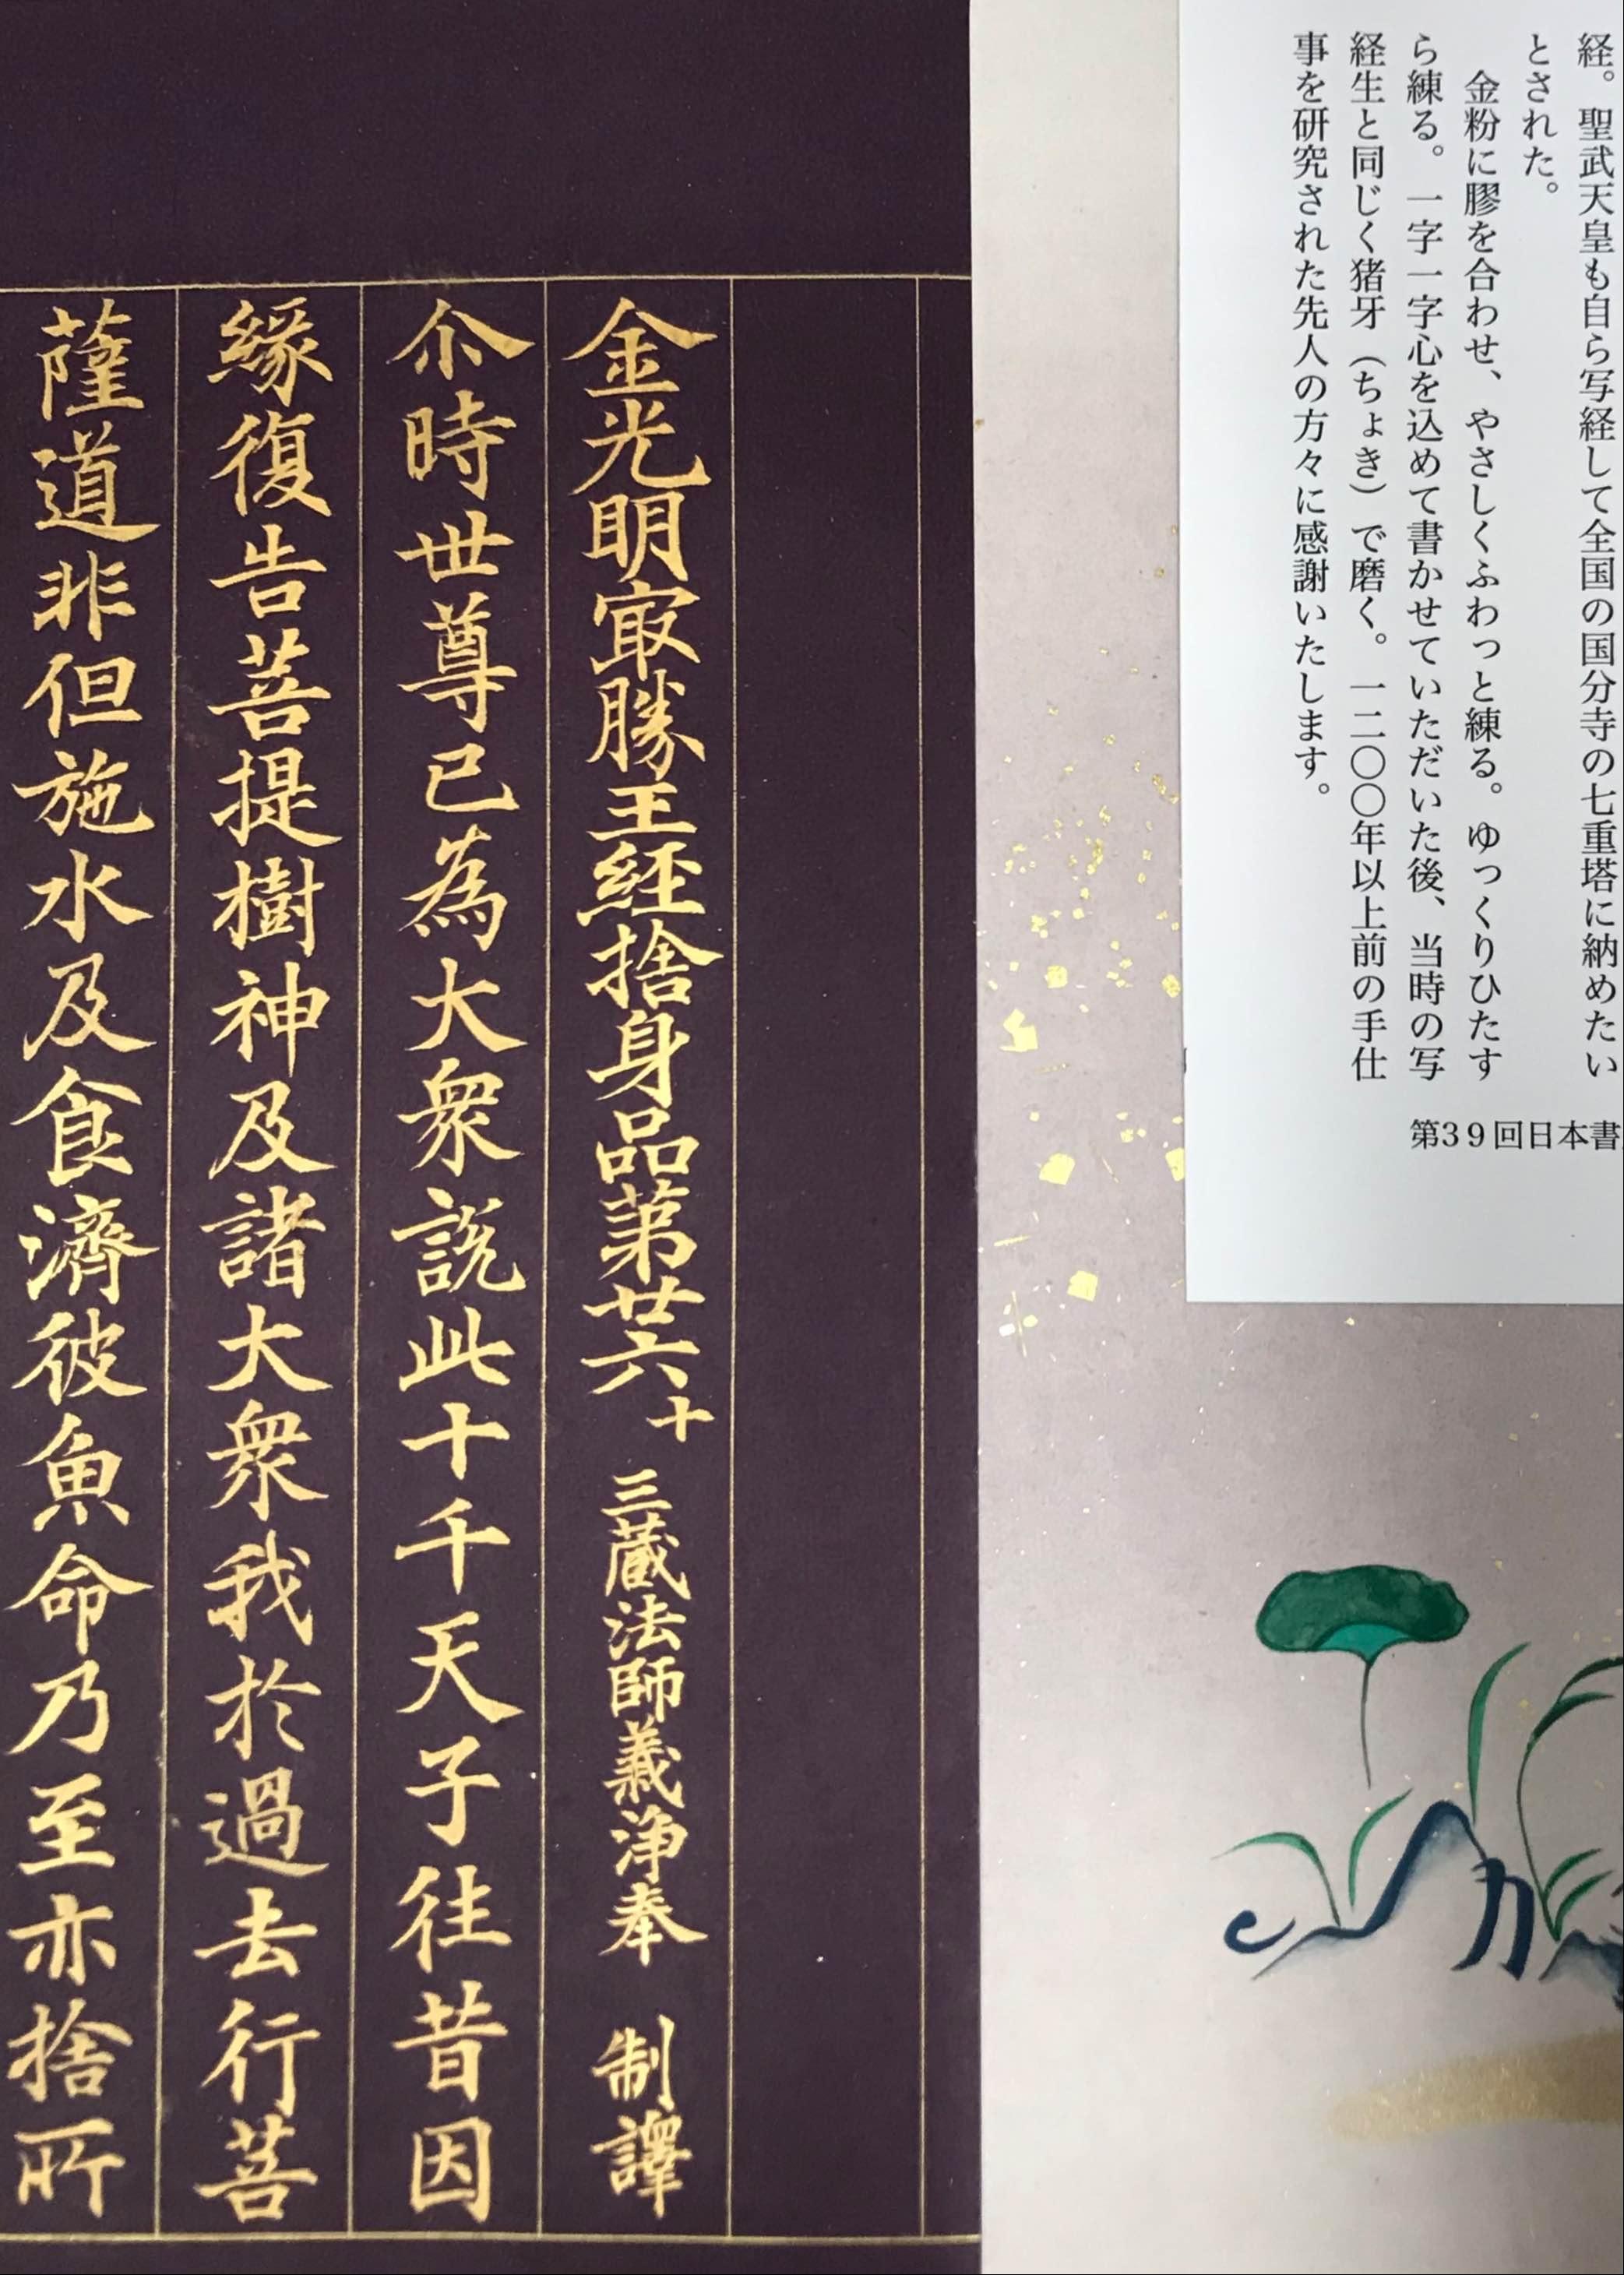 経。聖武天皇も自ら写経して全国の国分寺の七重塔に納めたい
とされた。
金粉に膠を合わせ、やさしくふわっと練る。ゆっくりひたす
ら練る。一字一字心を込めて書かせていただいた後、当時の写
経生と同じく猪牙（ちょき）で磨く。一二〇〇年以上前の手仕
事を研究された先人の方々に感謝いたします。
第39回日本書
金光明㝡勝王経捨身品第廿六 十 三蔵法師義浄奉 制譯
尒時世尊已為大衆説此十千天子往昔因
縁復告菩提樹神及諸大衆我於過去行菩
薩道非但施水及食濟彼魚命乃至亦捨所